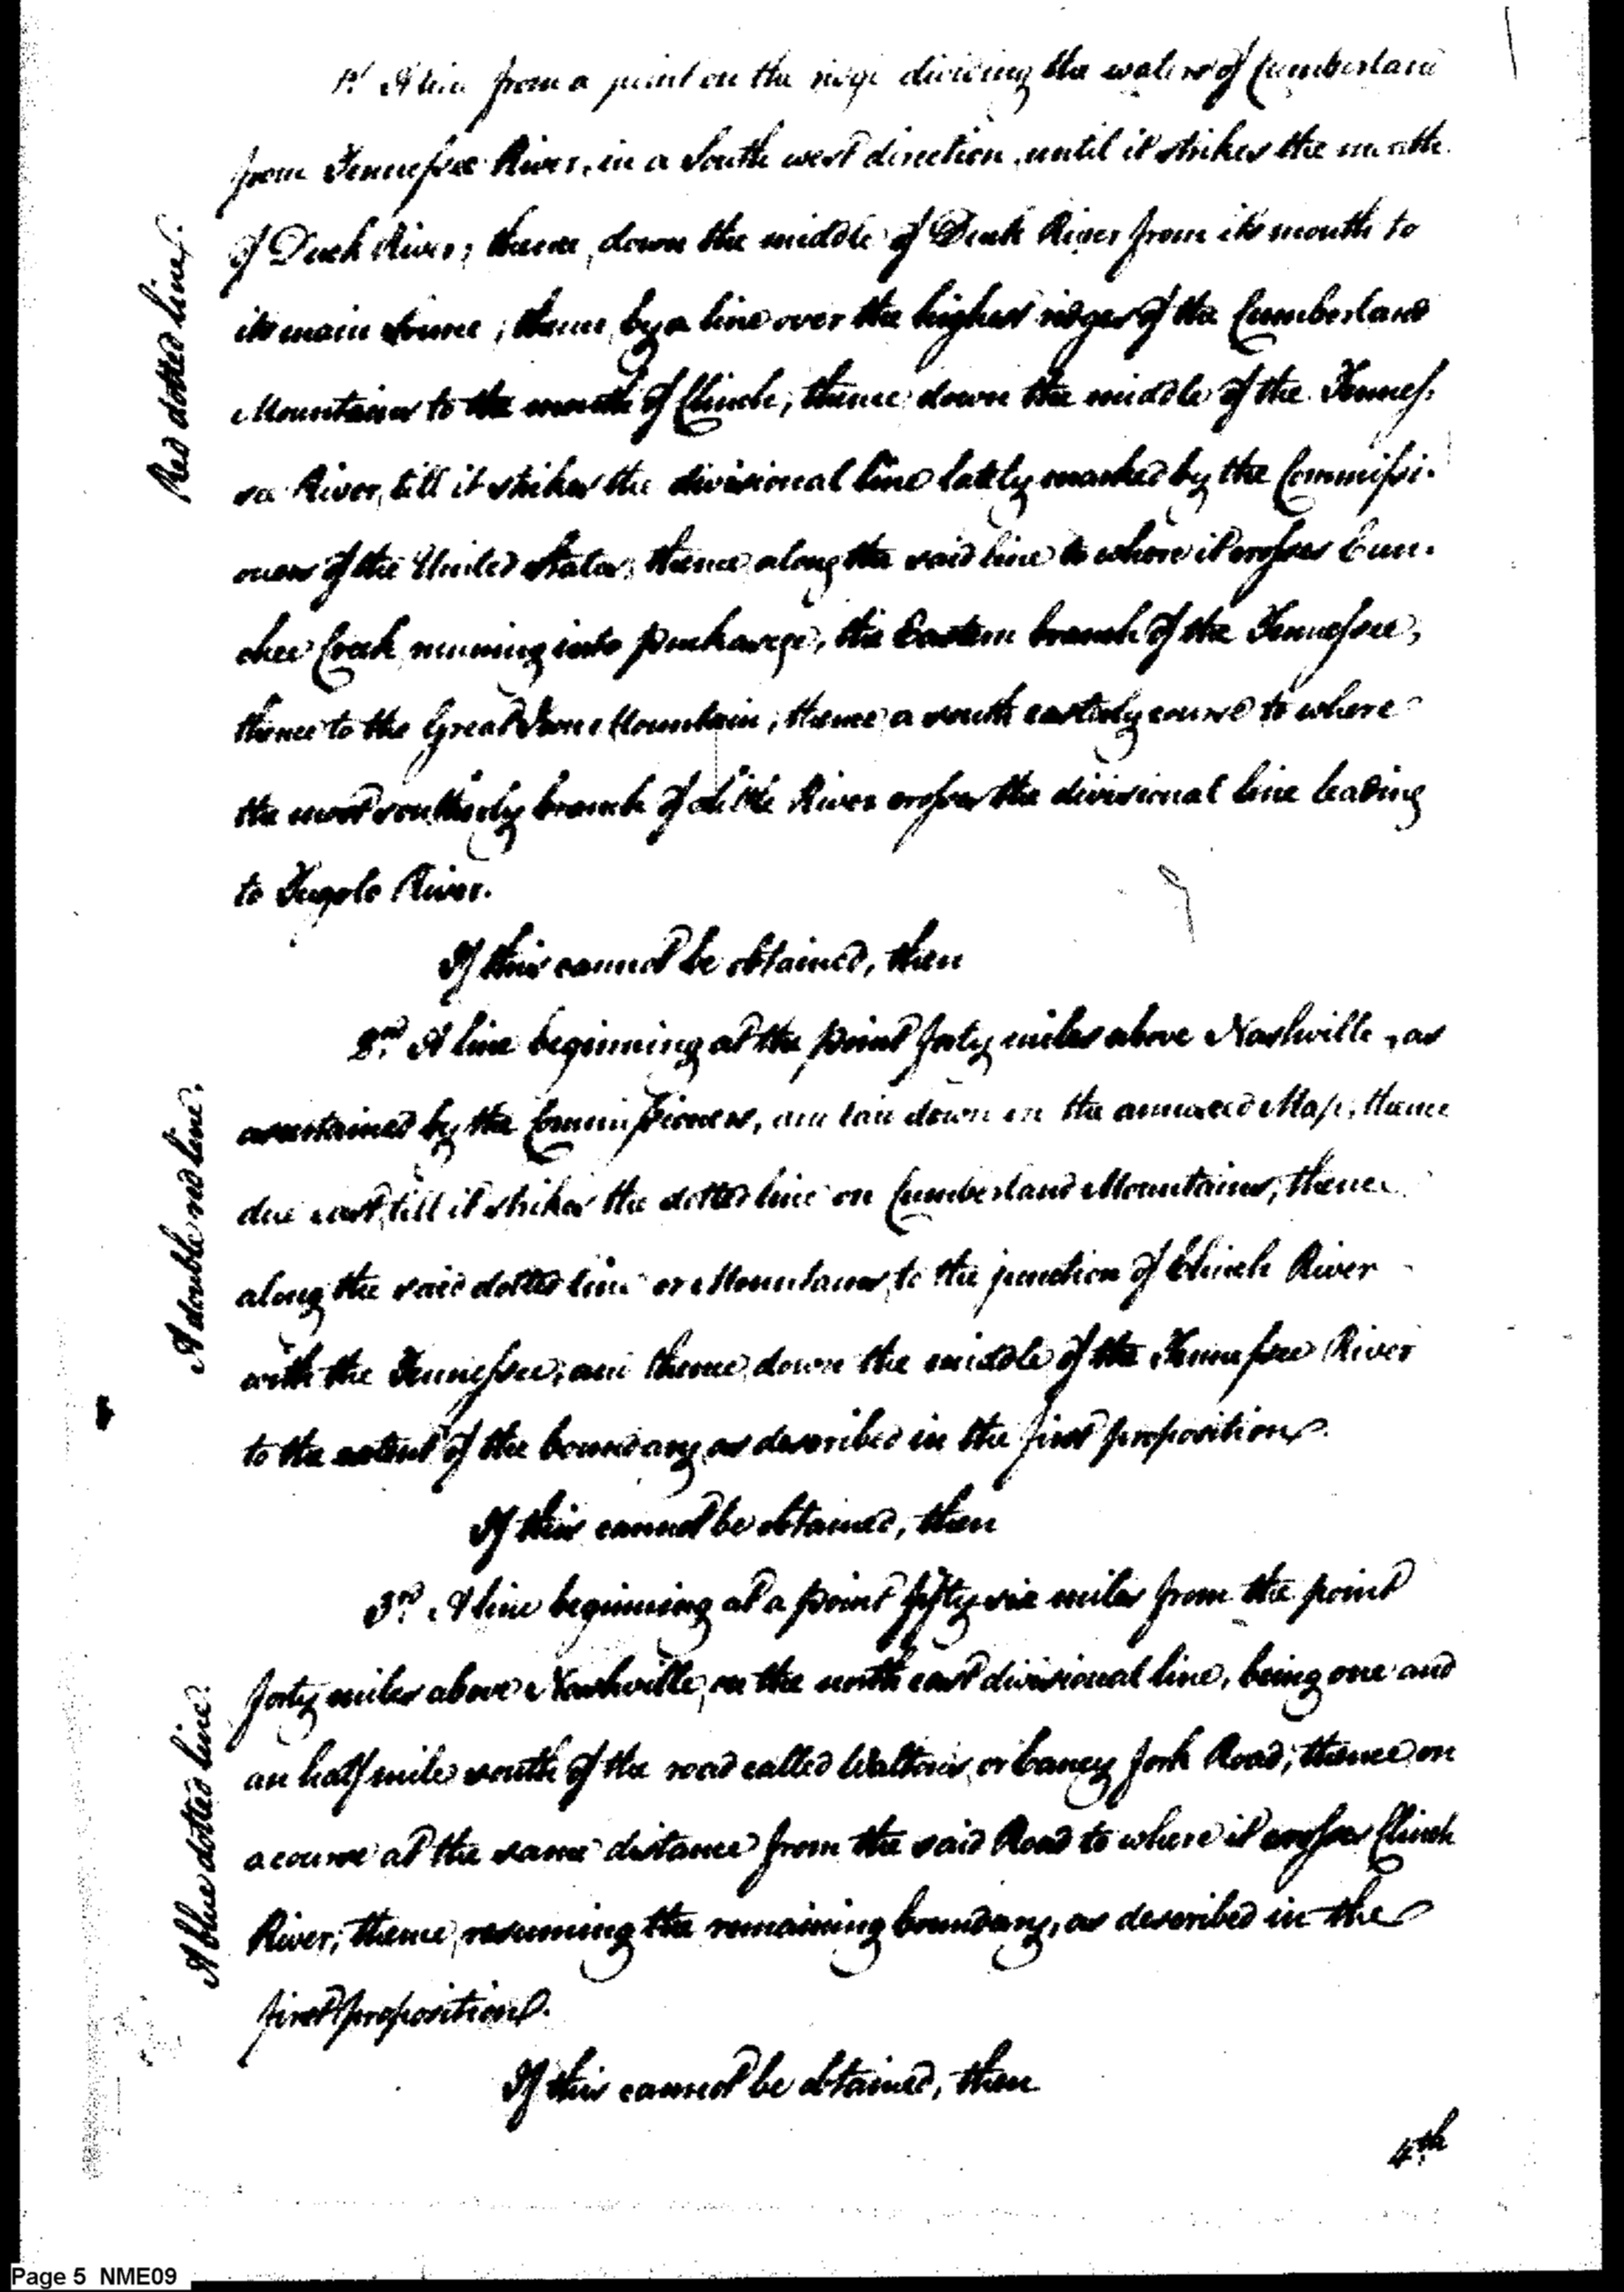 1st. A line from a point on the ridge dividing the waters of Cumberland
from Tennessee River, in a South west direction, until it strikes the mouth
of Duck River; thence, down the middle of Duck River from its mouth to
its main source; thence, by a line over the highest ridges of the Cumberland
Mountains to the mouth of Clinch; thence down the middle of the Tennes-
see River, till it strikes the divisional line lately marked by the Commissi-
oners of the United States; thence, along the said line to where it crosses Eun-
ohee Creek, running into , the Eastern branch of the Tennessee;
thence to the Great Iron Mountain; thence a south easterly course to where
the most southerly branch of Little River crosses the divisional line leading
to Tugolo River.
Red dotted line.
If this cannot be obtained, then
2nd. A line beginning at the point forty miles above Nashville, as
ascertained by the Commissioners, and laid down in the annexed Map; thence
due east, till it strikes the dotted line on Cumberland Mountains; thence
along the said dotted line or Mountains, to the junction of Clinch River
with the Tennessee; and thence, down the middle of the Tennessee River
to the extent of the boundary as described in the first proposition.
A double red line.
If this cannot be obtained, then
3rd. A line beginning at a point fifty six miles from the point
forty miles above Nashville, on the north east divisional line, being one and
an half mile south of the road called Waltons, or Caney fork Road; thence, on
a course at the same distance from the said Road to where it crosses Clinch
River; thence, resuming the remaining boundary, as described in the
first proposition.
A blue dotted line.
If this cannot be obtained, then
4th
Page 5 NME09